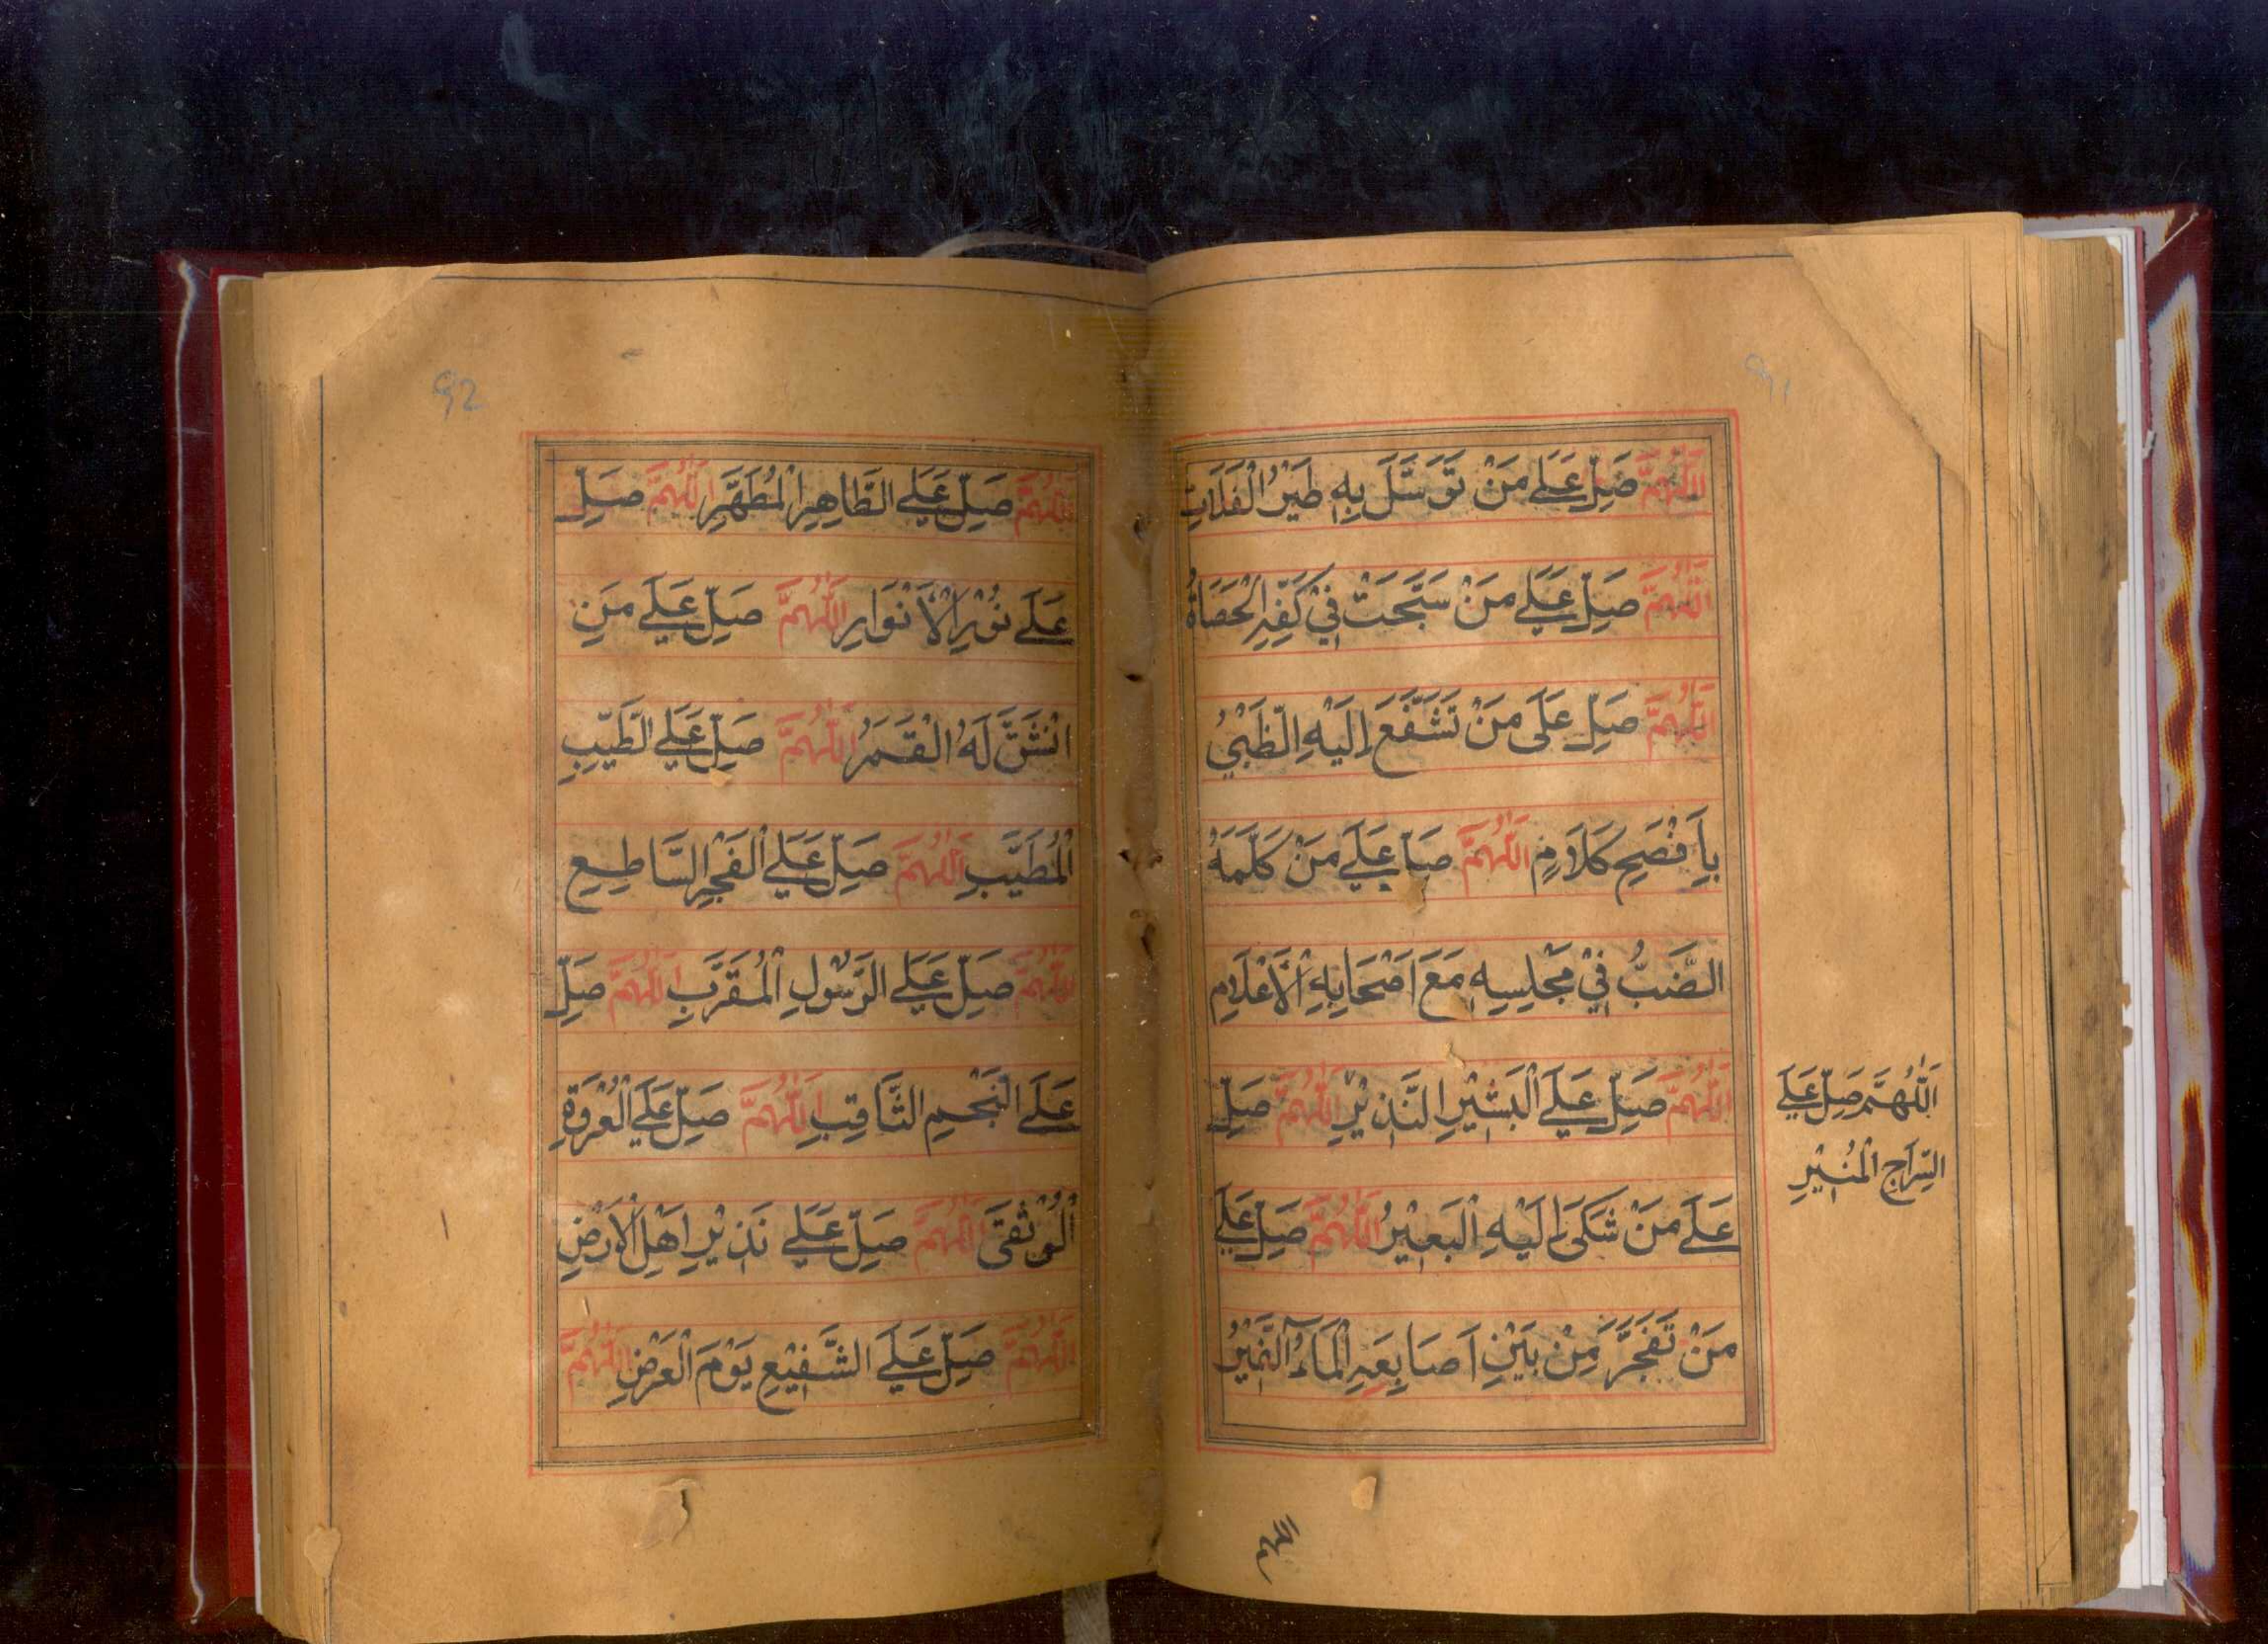 اَللّٰهُمَّ صَلِّ عَلٰے مَنْ تَوَسَّلَ بِهٖ طَيْرُ الْفَلَاتِ
اَللّٰهُمَّ صَلِّ عَلٰے مَنْ سَبَّحَتْ فِيْ كَفِّهِ الْحَصَاةُ
اَللّٰهُمَّ صَلِّ عَلٰى مَنْ تَشَفَّعَ اِلَيْهِ الظَّبْيُ
بِاَفْصَحِ كَلَامٍ اَللّٰهُمَّ صَلِّ عَلٰے مَنْ كَلَّمَهُ
الضَّبُّ فِيْ مَجْلِسِهٖ مَعَ اَصْحَابِهِ الْاَعْلَامِ
اَللّٰهُمَّ صَلِّ عَلَے الْبَشِيْرِ النَّذِيْرِ اَللّٰهُمَّ صَلِّ
عَلٰے مَنْ شَكٰى اِلَيْهِ الْبَعِيْرُ اَللّٰهُمَّ صَلِّ عَلٰے
مَنْ تَفَجَّرَ مِنْ بَيْنِ اَصَابِعِهِ الْمَآءُ النَّمِيْرُ
اَللّٰهُمَّ صَلِّ عَلَے
السِّرَاجِ الْمُنِيْرِ
اللهم
92
اَللّٰهُمَّ صَلِّ عَلَے الطَّاهِرِ الْمُطَهَّرِ اَللّٰهُمَّ صَلِّ
عَلٰے نُوْرِ الْاَنْوَارِ اَللّٰهُمَّ صَلِّ عَلٰے مَنِ
انْشَقَّ لَهُ الْقَمَرُ اَللّٰهُمَّ صَلِّ عَلَے الطَّيِّبِ
الْمُطَيَّبِ اَللّٰهُمَّ صَلِّ عَلَے الْفَجْرِ السَّاطِعِ
اَللّٰهُمَّ صَلِّ عَلَے الرَّسُوْلِ الْمُقَرَّبِ اَللّٰهُمَّ صَلِّ
عَلَے النَّجْمِ الثَّاقِبِ اَللّٰهُمَّ صَلِّ عَلَے الْعُرْوَةِ
الْوُثْقَى اَللّٰهُمَّ صَلِّ عَلٰے نَذِيْرِ اَهْلِ الْاَرْضِ
اَللّٰهُمَّ صَلِّ عَلَے الشَّفِيْعِ يَوْمَ الْعَرْضِ اَللّٰهُمَّ